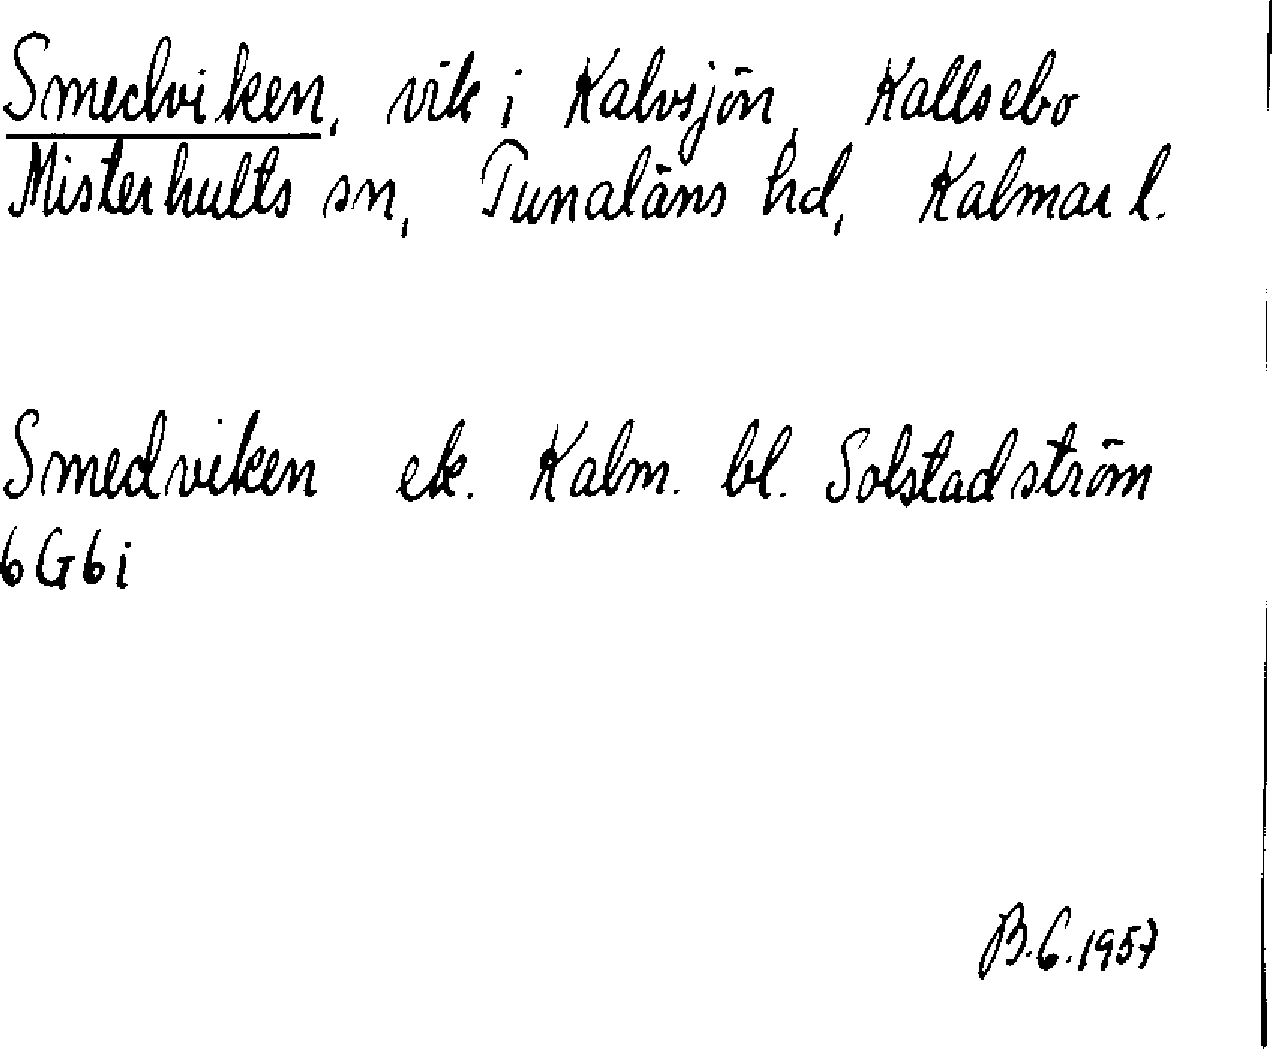 Smedviken, vik i Kalvsjön, Kallsebo
Misterhults sn, Tunaläns hd, Kalmar l.
Smedviken ek. Kalm. bl. Solstadström
6G6i
B.G.1957